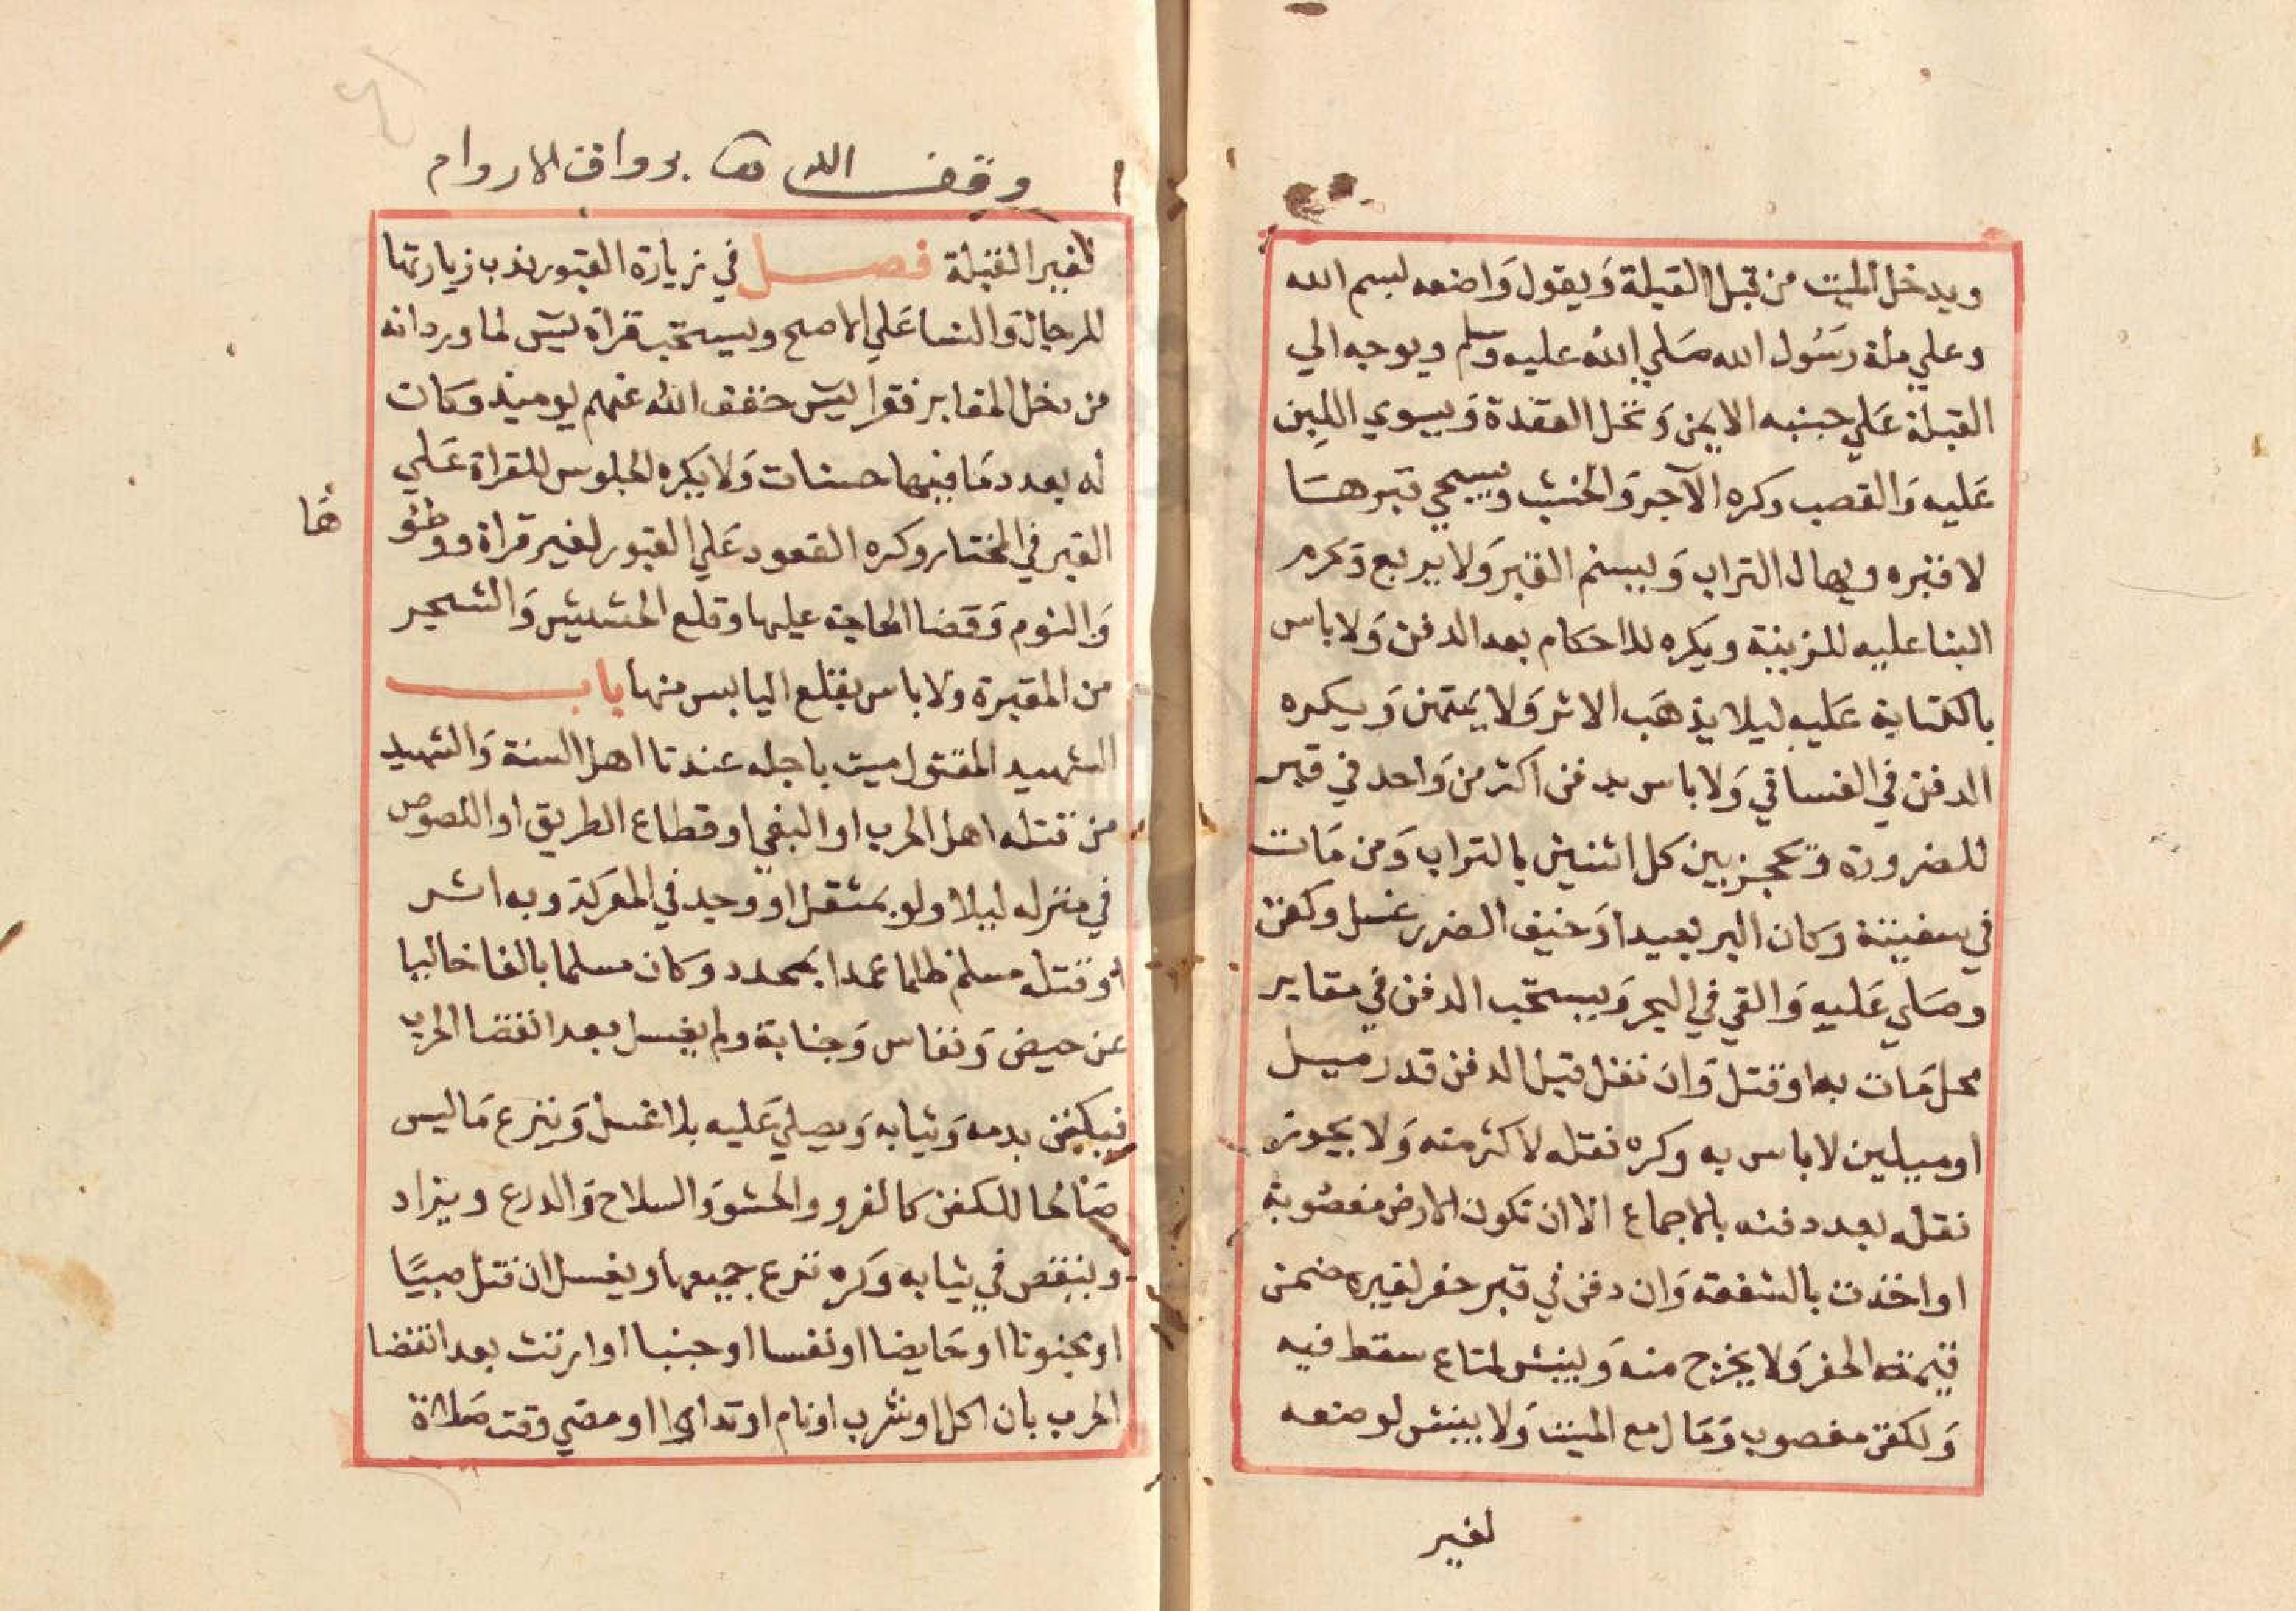 ويدخل الميت من قبل القبلة وَيقول وَاضعه بسم الله
وعلي ملة رسُول الله صَلي الله عليه وسلم ويوجه الي
القبلة عَلي جنبه الايمن وَتحل العقدة وَيسوي اللبِن
عَليه وَالقصب وكره الآجر وَالخشب ويسجي قبرهَا
لا قبره ويهال التراب وَيسنم القبر وَلا يربع وَيحرم
البنا عليه للزينة ويكره للاحكام بعد الدفن وَلا باس
بالكتابة عَليه ليلا يذهَب الاثر وَلا يمتهن وَيكره
الدفن في الفساقي وَلا باس بدفن اكثر من وَاحد في قبر
للضرورة وَيحجز بين كل اثنين بالتراب وَمن مَات
في سفينة وكان البر بعيدا اوَ خيف الضرر غسل وكفن
وصَلي عَليه وَالقي في البحر وَيستحب الدفن في مقابر
محل مَات به او قتل وَان نقل قبل الدفن قدر ميل
او ميلين لا باس به وكره نقله لاكثر منه وَلا يجوز
نقله بعد دفنه بالاجماع الا ان تكون الارض مغصُوبة
او اخذت بالشفعة وَان دفن في قبر حفر لغيره ضمن
قيمة الحفر وَلا يخرج منه وَينبش لمتاع سقط فيه
وَلكفن مغصوب وَمَال مع الميت وَلا ينبش لو ضعه
لغير
وقف الله برواق الاروام
لغير القبلة فصل في زيارة القبور ندب زيارتها
للرجال وَالنسا عَلي الاصح ويستحب قراة يس لما ورد انه
من دخل المقابر فقرا يس خفف الله عنهم يوميذ وكان
له بعدد مَا فيها حسنات وَلا يكره الجلوس للقراة عَلي
القبر في المختار وكره القعود عَلي القبور لغير قراة ووطئو
هَا
وَالنوم وَقضا الحاجة عليها وقلع الحشيش وَالشجر
من المقبرة ولا باس بقلع اليابس منها باب
الشهيد المقتول ميت باجله عندنا اهل السنة وَالشهيد
من قتله اهل الحرب او البغي او قطاع الطريق او اللصوص
في منزله ليلا ولو بمثقل او وجد في المعركة وبه اثر
او قتله مسلم ظلما عمدا بمحدد وكان مسلما بالغا خاليا
عن حيض وَنفاس وَجنابة ولم يغسل بعد انقضا الحرب
فيكفن بدمه وَثيابه وَيصلي عَليه بلا غسل وَينزع مَا ليس
صَالحا للكفن كالفرو والحشو وَالسلاح وَالدرع ويزاد
وينقص في ثيابه وَكره نزع جميعها ويغسل ان قتل صبيًا
او مجنونا او حَايضا او نفسا او جنبا او ارتث بعد انقضا
الحرب بان اكل او شرب او نام او تداوا او مضي وقت صَلاة